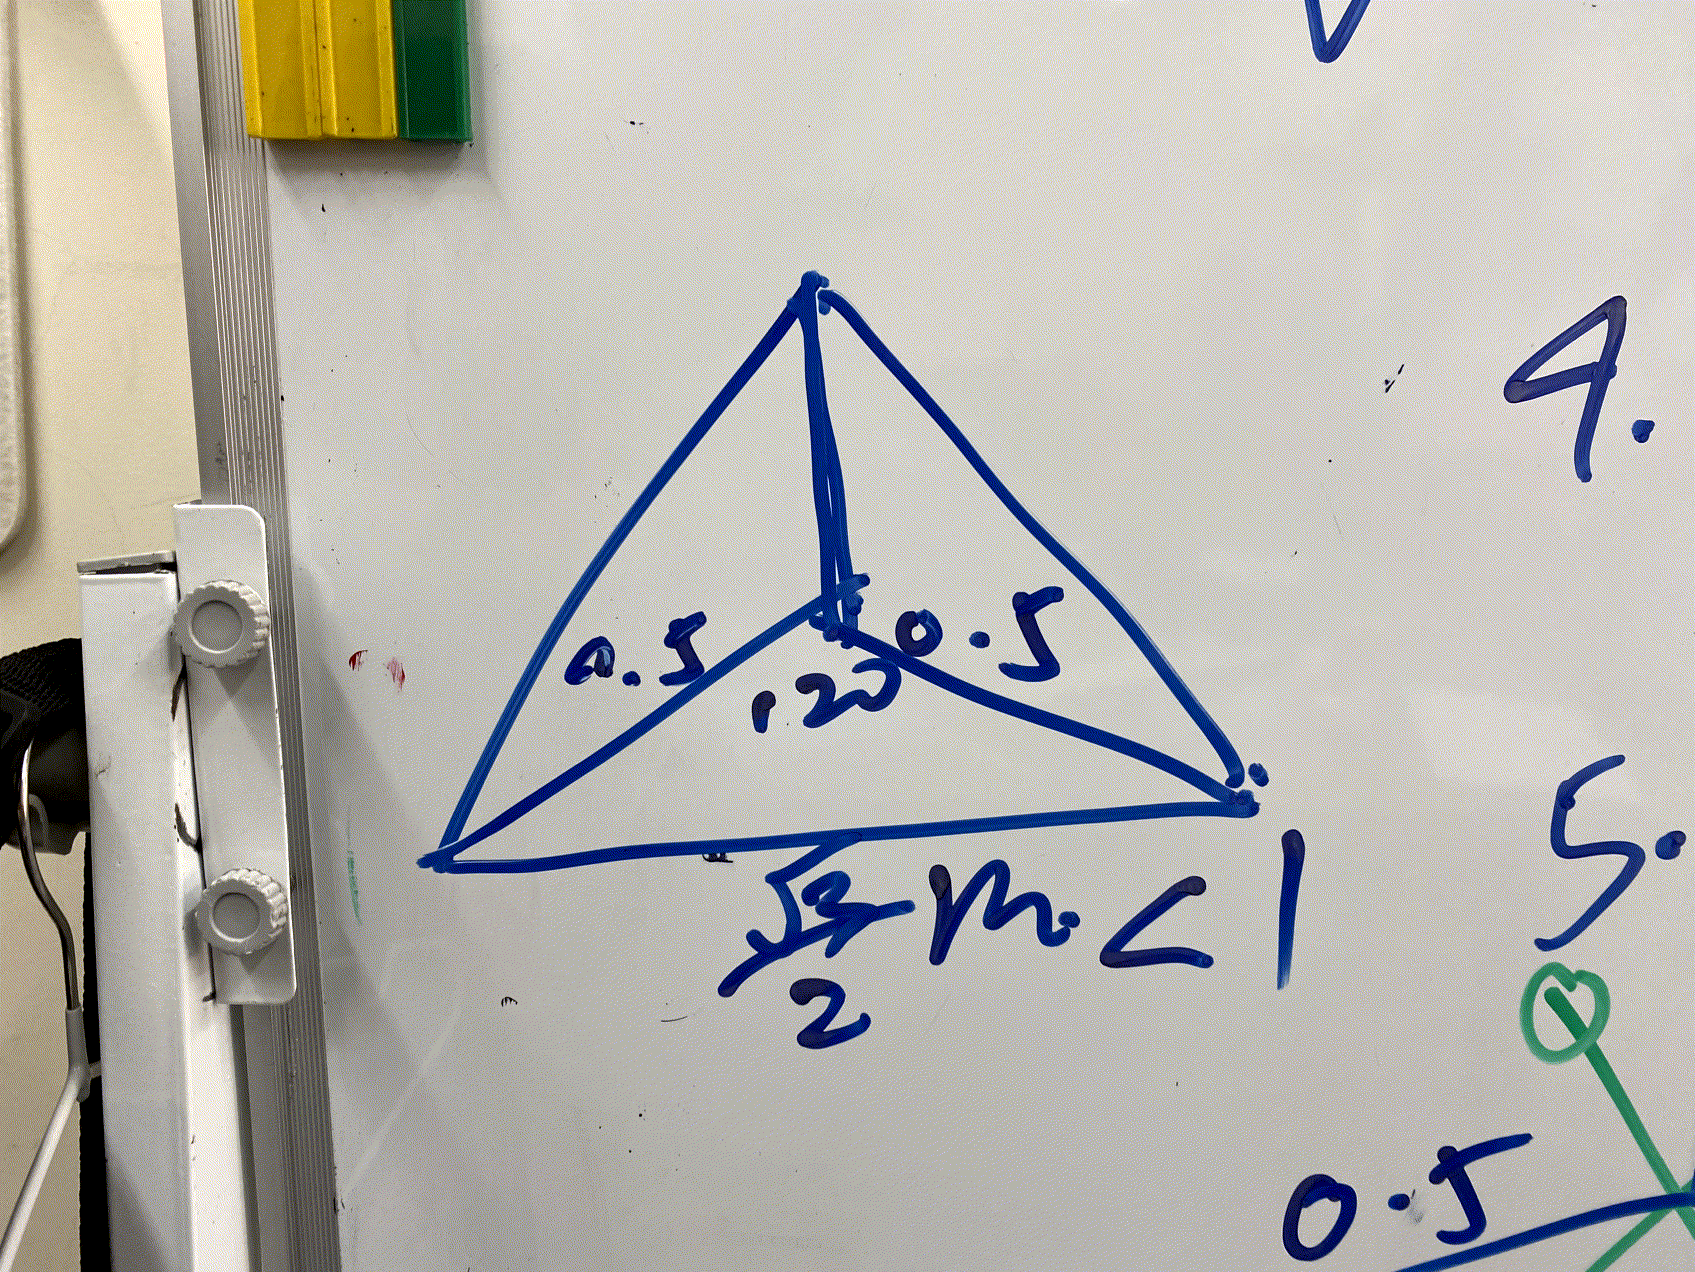 4.
0.5
0.5
120
5.
√3/2 m. < 1
0.5